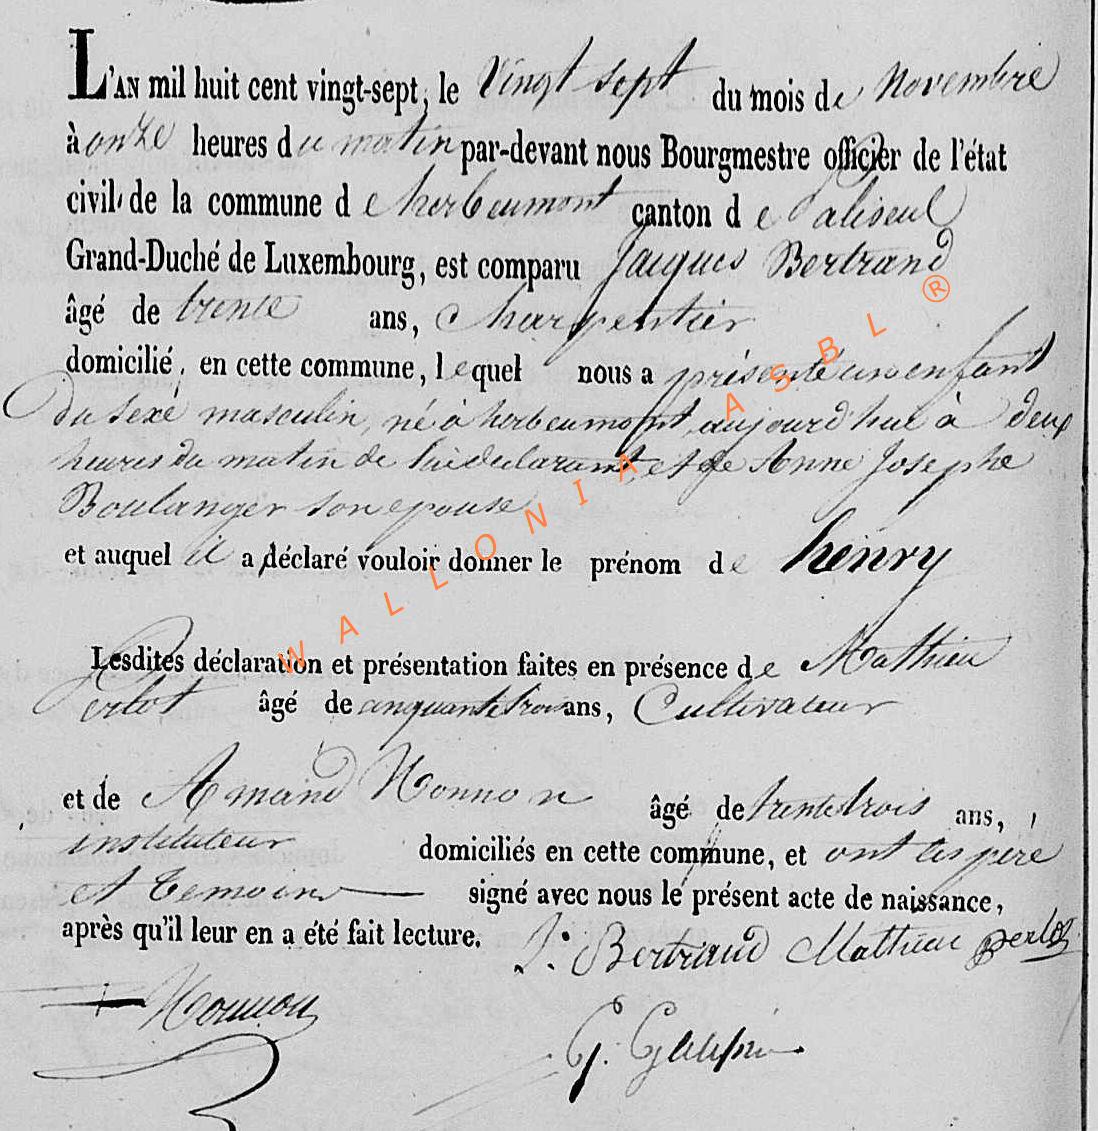 L'AN mil huit cent vingt-sept, le Vingt sept du mois de Novembre
à onze heures du matin par-devant nous Bourgmestre officier de l'état
civil de la commune de herbeumont canton de Paliseul
Grand-Duché de Luxembourg, est comparu Jacques Bertrand
âgé de trente ans, Charpentier
domicilié, en cette commune, lequel nous a présenté un enfant
du sexe masculin, né à herbeumont, aujourd'hui à deux
heures du matin de lui déclarant et de Anne Josephe
Boulanger son épouse
et auquel il a déclaré vouloir donner le prénom de henry
Lesdites déclaration et présentation faites en présence de Mathieu
Perlot âgé de cinquante trois ans, Cultivateur
et de Amand Nonnon âgé de trente trois ans,
instituteur domiciliés en cette commune, et ont les père
et temoins signé avec nous le présent acte de naissance,
après qu'il leur en a été fait lecture. J: Bertrand Mathieu Perlot
Nonnon
WALLONIA ASBL ®